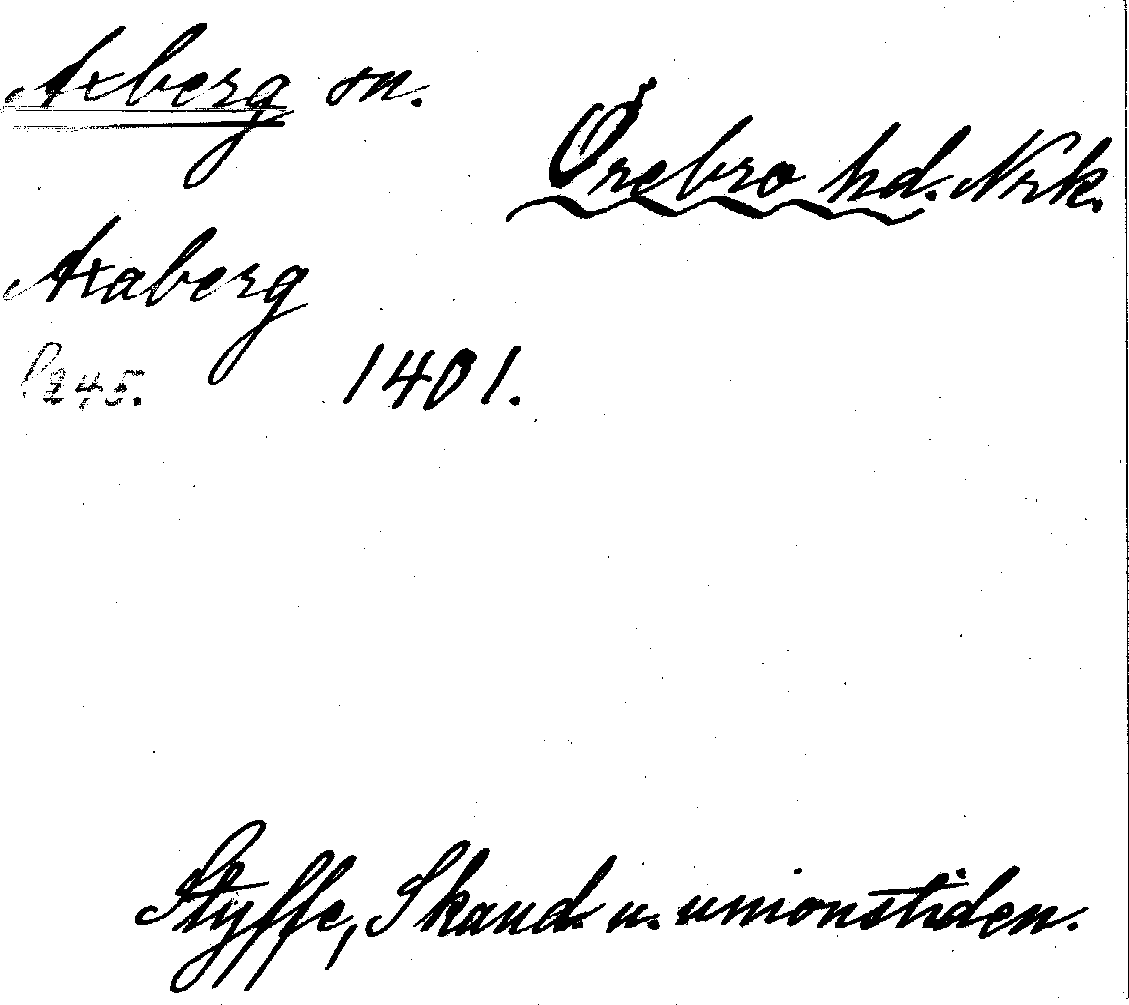 Axberg sn.
Örebro hd. Nrk.
Axaberg
P. 245. 1401.
Styffe, Skand. u. unionstiden.